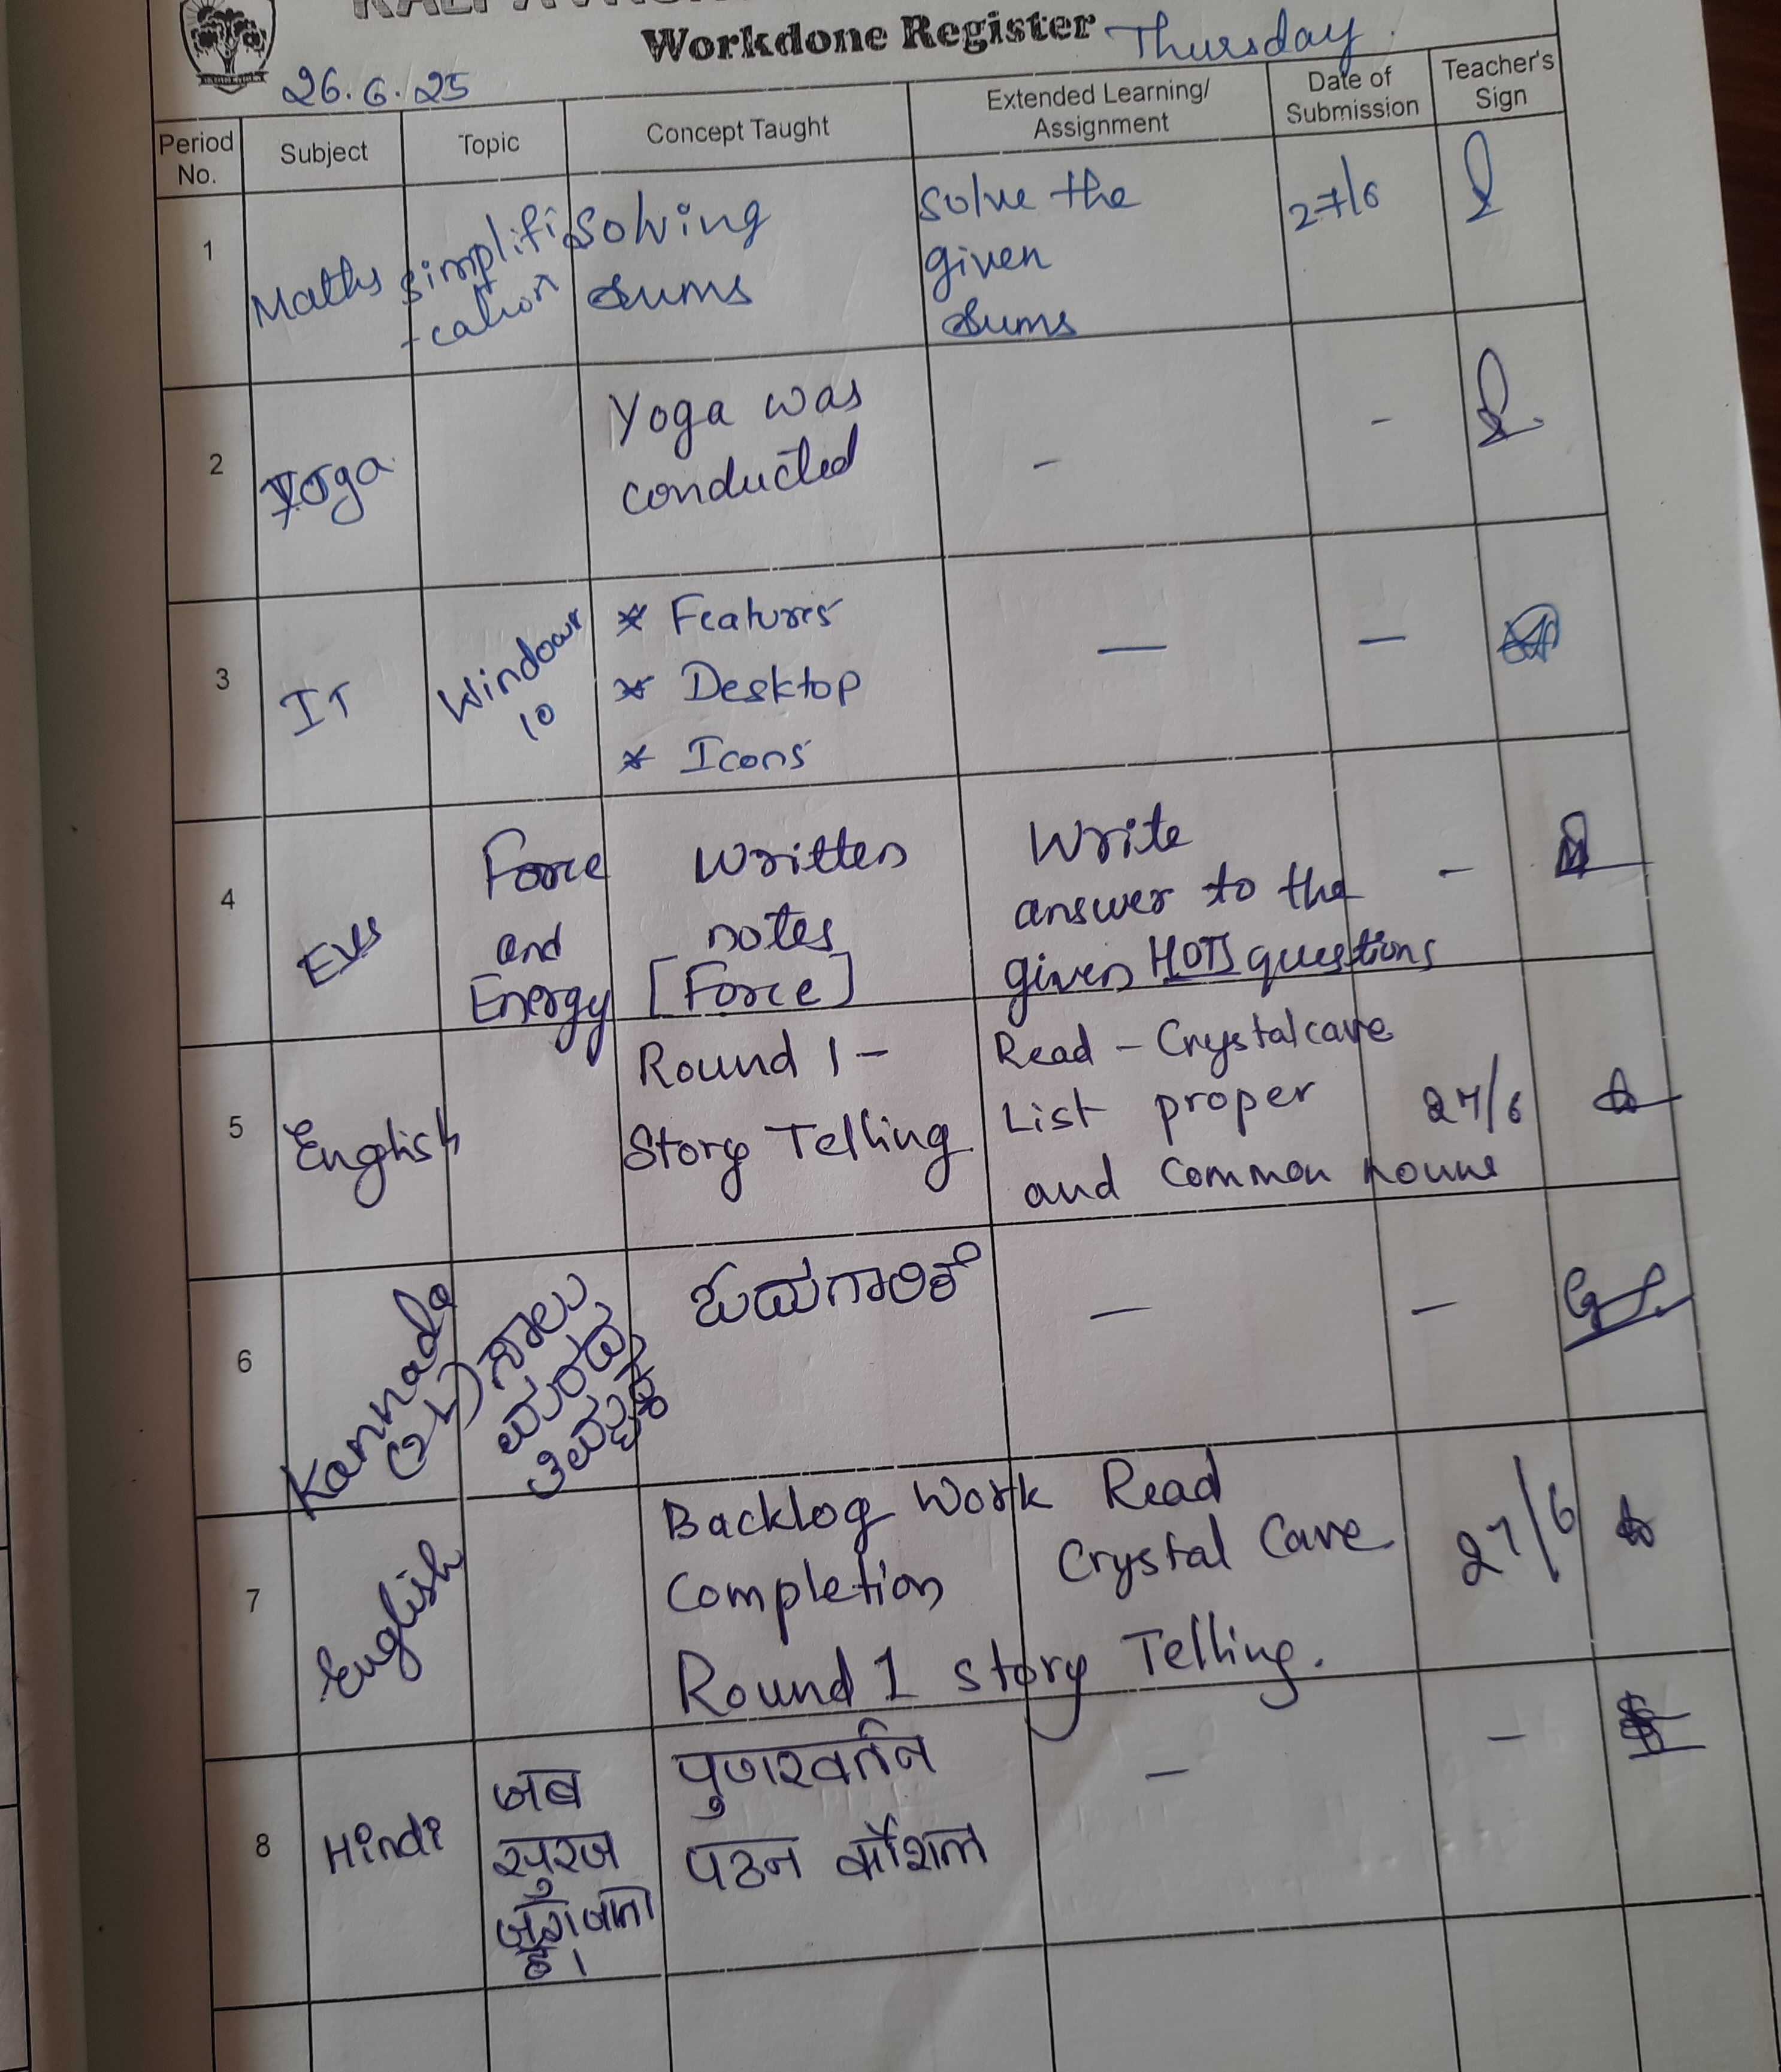 Workdone Register
Thursday
26.6.25
Period No.
Subject
Topic
Concept Taught
Extended Learning/ Assignment
Date of Submission
Teacher's Sign
1
Maths
simplifi
-cation
Solving
sums
solve the
given
sums
27/6
2
Yoga
Yoga was
conducted
-
-
3
IT
Windows
10
* Features
* Desktop
* Icons
—
—
4
EVS
Force
and
Energy
Written
notes
[Force]
Write
answer to the
given HOTS questions
-
5
English
Round 1 -
Story Telling
Read - Crystal cave
List proper
and common nouns
27/6
6
Kannada
(2L)
ಸಾಲು
ಮರದ
ತಿಮ್ಮಕ್ಕ
ಓದುಗಾರಿಕೆ
—
—
7
English
Backlog Work
Completion
Read
Crystal Cave
Round 1 story Telling.
27/6
8
Hindi
जब
सुरज
पुणरवर्तन
पठन कौशल
—
—